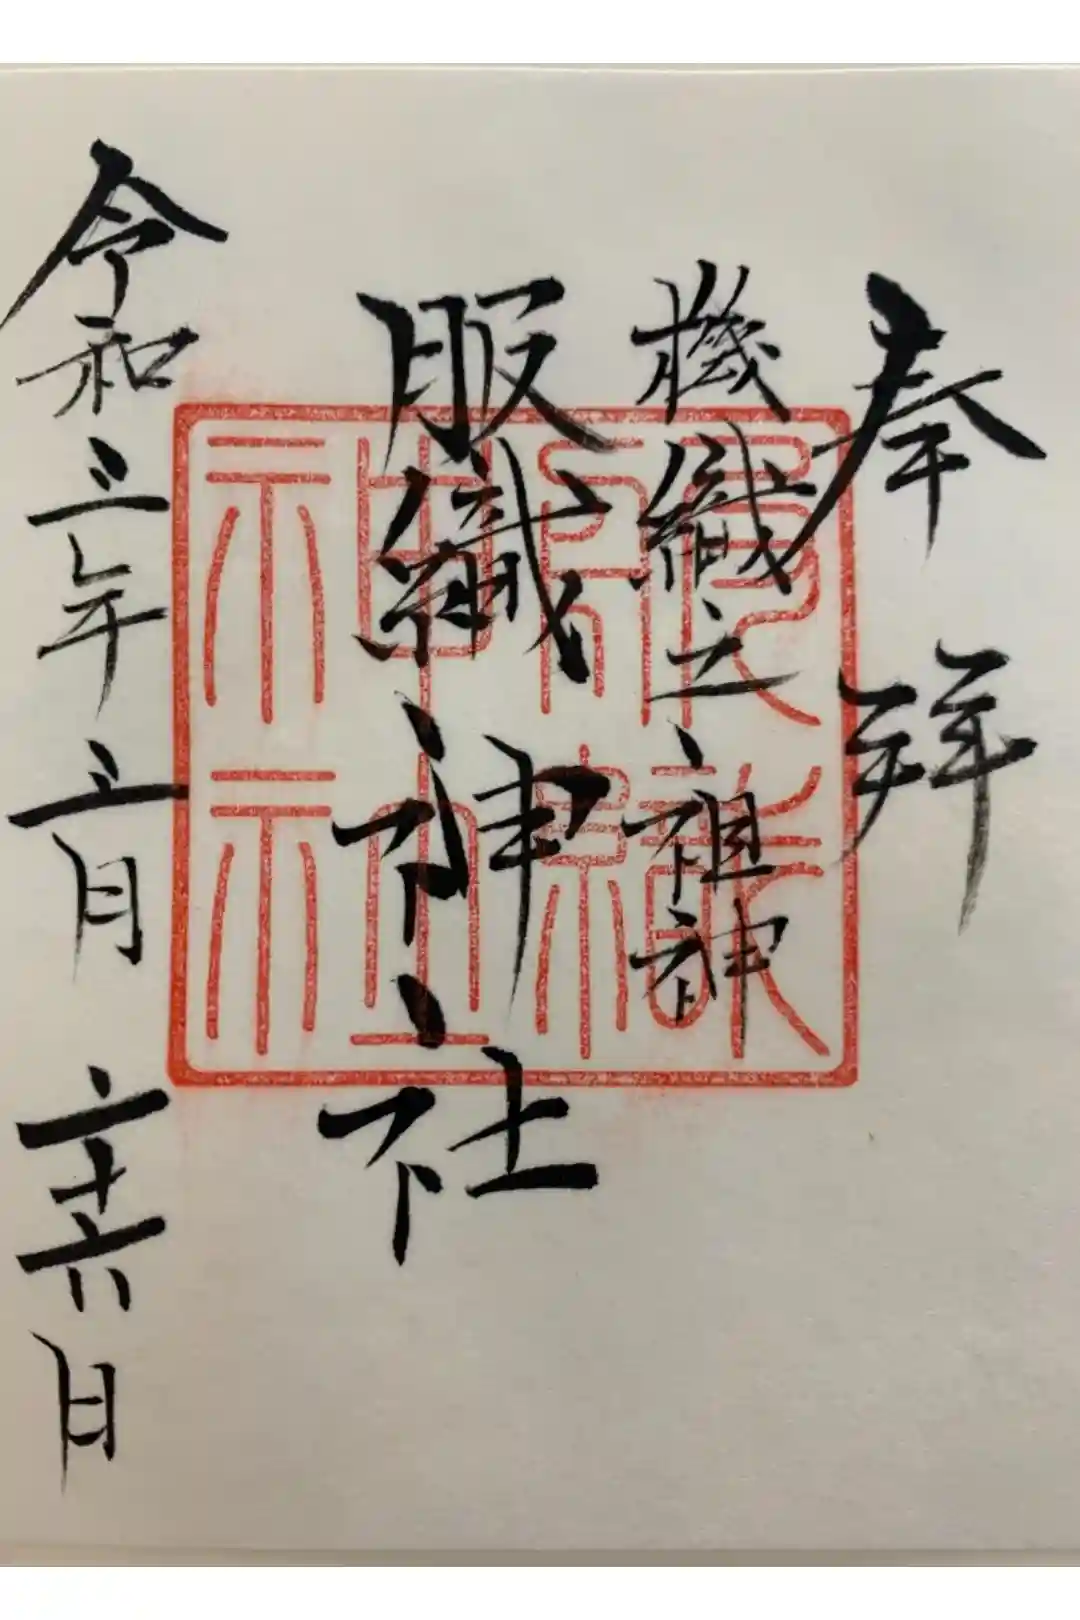 奉拝
機織之祖神
服織神社
令和三年三月二十六日
服織
神社